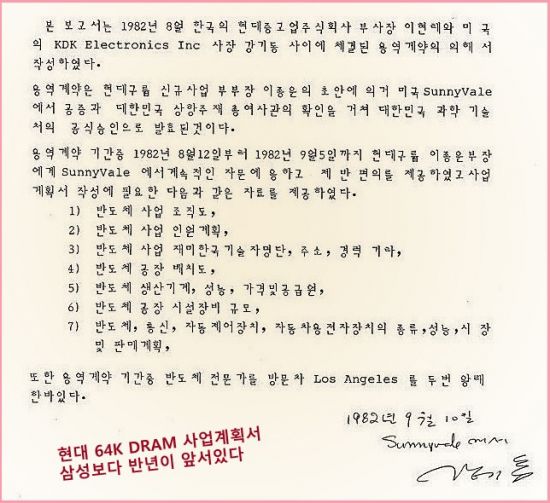 본 보고서는 1982년 8월 한국의 현대중고업주식희사 부사장 이현태와 미 국
의 KDK Electronics Inc 사장 강기동 사이에 체결된 용역계약의 의해 서
작성하였다.
용역계약은 현대구릅 신규사업 부부장 이종운의 초안에 의거 미국SunnyVale
에서 공증과 대한민국 상항주재 총여사관의 확인을 거쳐 대한민국 과학 기술
처의 공식승인으로 발효된것이다.
용역계약 기간중 1982년 8월12일부터 1982년 9월5일까지 현대구릅 이종운부장
에게 SunnyVale 에서계속적인 자문에 응하고 제 반 편의를 제공하였고사업
계획서 작성에 필요한 다음과 같은 자료를 제공하였다.
1) 반도체 사업 조직도,
2) 반도체 사업 인원계획,
3) 반도체 사업 재미한국기술자명단, 주소, 경력 기타,
4) 반도체 공장 배치도,
5) 반도체 생산기계, 성능, 가격및공급원,
6) 반도체 공장 시설장비 규모,
7) 반도체, 통신, 자동제어장치, 자동차용전자장치의 종류,성능,시 장
및 판매계획,
또한 용역계약 기간중 반도체 전문가를 방문차 Los Angeles 를 두번 왕래
한바있다.
1982년 9월 10일
Sunnyvale 에서
강기동
현대 64K DRAM 사업계획서
삼성보다 반년이 앞서있다